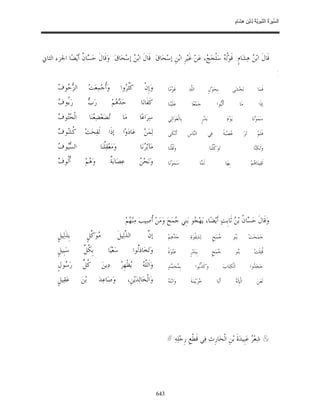 السيرة النبوية لابن هشام
قَالَ ابْنُ هِشَامٍ قَوْلُهُ سَلْجَجُ، عَنْ غَيْرِ ابْنِ إسْحَاقَ. قَالَ ابْنُ إسْحَاقَ. وَقَالَ حَسَّانُ أَيْضًا الجزء الثاني
فَمَا نَخْشَى بِحَوْلِ اللَّهِ قَوْمًا وَإِنْ كَثُرُوا وَأُجْمِعَتْ الزُّحُوفُ
إذَا مَا أَلَّبُوا جَمْعًا عَلَيْنَا كَفَانَا حَدَّهُمْ رَبٌّ رَءُوفُ
سَمَوْنَا يَوْمَ بَدْرٍ بِالْعَوَالِي سِرَاعًا مَا تُضَعْضِعُنَا الْحُتُوفُ
فَلَمْ تَرَ عُصْبَةً فِي النَّاسِ أَنْكَى لِمَنْ عَادَوْا إذَا لَقِحَتْ كُشُوفُ
وَلَكِنَّا تَوَكَّلْنَا وَقُلْنَا مَآثِرُنَا وَمَعْقِلُنَا السُّيُوفُ
لَقِينَاهُمْ بِهَا لَمَّا سَمَوْنَا وَنَحْنُ عِصَابَةٌ وَهُمْ أُلُوفُ
وَقَالَ حَسَّانُ بْنُ ثَابِتٍ أَيْضًا، يَهْجُو بَنِي جُمَحَ وَمَنْ أُصِيبَ مِنْهُمْ:
جَمَحَتْ بَنُو جُمَحٍ لِشِقْوَةِ جَدِّهِمْ إنَّ الذَّلِيلَ مُوَكَّلٌ بِذَلِيلِ
قُتِلَتْ بَنُو جُمَحٍ بِبَدْرٍ عَنْوَةً وَتَخَاذَلُوا سَعْيًا بِكُلِّ سَبِيلِ
جَحَدُوا الْكِتَابَ وَكَذَّبُوا بِمُحَمَّدٍ وَاَللَّهُ يُظْهِرُ دِينَ كُلِّ رَسُولِ
لَعَنَ الْإِلَهُ أَبَا خُزَيْمَةَ وَابْنَهُ وَالْخَالِدَيْنِ، وَصَاعِدَ بْنَ عَقِيلِ
// شِعْرُ عُبَيْدَةَ بْنِ الْحَارِثِ فِي قَطْعِ رِجْلِهِ //
643